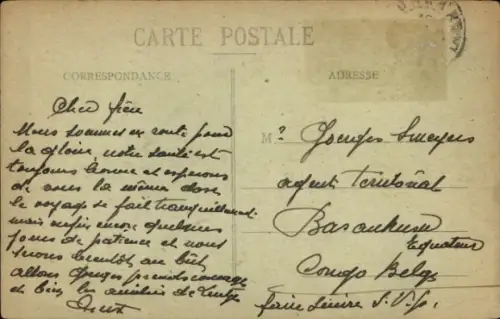 CARTE POSTALE
CORRESPONDANCE
ADRESSE
Cher frère
Nous sommes en route pour
la gloire notre santé est
toujours bonne et esperons
de vous la même chose
le voyage se fait tranquillement
mais enfin encore quelques
jours de patience et nous
serons bientôt au but
allons Georges prends courage
et bien les amitiés de
Mr Georges Smeyers
agent Territorial
Basankusu
Equateur
Congo Belge
faire suivre S.V.P.